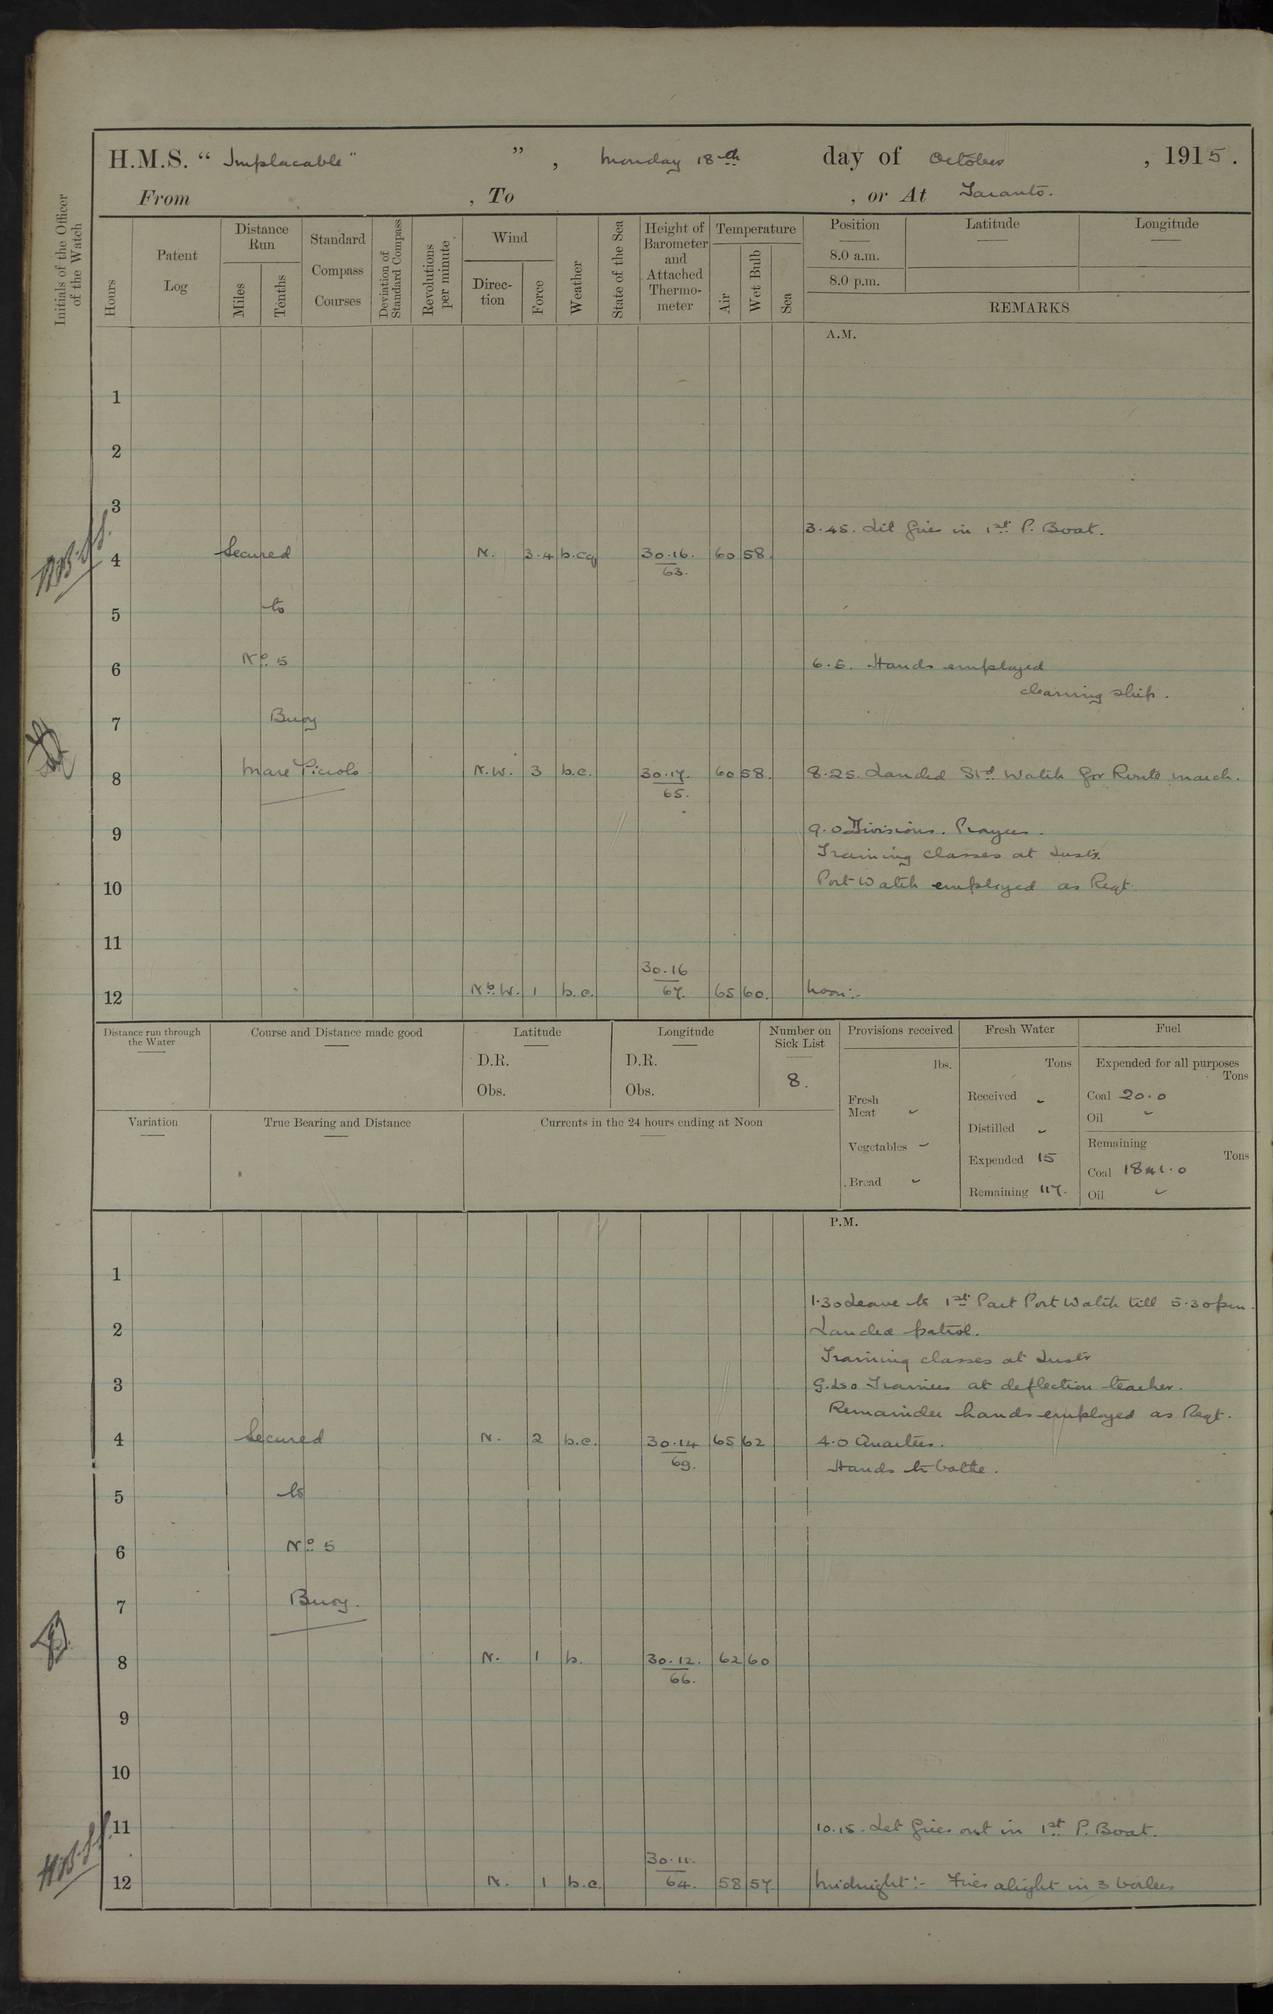 H.M.S. " Implacable" " , Monday 18th day of October , 1915.
From , To , or At Taranto.
Initials of the Officer of the Watch
Hours
Patent Log
Distance Run
Miles
Tenths
Standard Compass Courses
Deviation of Standard Compass
Revolutions per minute
Wind
Direction
Force
Weather
State of the Sea
Height of Barometer and Attached Thermometer
Temperature
Air
Wet Bulb
Sea
Position
8.0 a.m.
8.0 p.m.
Latitude
Longitude
REMARKS
A.M.
1
2
3
3.45. Lit fires in 1st P. Boat.
4 Secured N. 3.4 b.cq 30.16. 63. 60 58.
5 to
6 No. 5 6.5. Hands employed
cleaning ship.
7 Buoy
8 Mare Piccolo N.W. 3 b.c. 30.17. 65. 60 58. 8.25. Landed Std Watch for Route march.
9 9.0 Divisions. Prayers.
Training classes at Instr.
10 Port Watch employed as Reqt.
11
12 No. W. 1 b.c. 30.16 67. 65 60. Noon:-
Distance run through the Water
Course and Distance made good
Latitude
D.R.
Obs.
Longitude
D.R.
Obs.
Number on Sick List
8.
Provisions received
lbs.
Fresh Meat -
Vegetables -
Bread -
Fresh Water
Tons
Received -
Distilled -
Expended 15
Remaining 117.
Fuel
Expended for all purposes
Tons
Coal 20.0
Oil -
Remaining
Tons
Coal 1841.0
Oil -
Variation
True Bearing and Distance
Currents in the 24 hours ending at Noon
P.M.
1
1.30 Leave to 1st Part Port Watch till 5.30 pm.
2 Landed patrol.
Training classes at Instr
3 G.L.o Trainees at deflection teacher.
Remainder hands employed as Reqt.
4 Secured N. 2 b.c. 30.14 69. 65 62 4.0 Quarters.
Hands to bathe.
5 to
6 No. 5
7 Buoy.
8 N. 1 b. 30.12. 66. 62 60
9
10
11 10.15. Let fires out in 1st P. Boat.
12 N. 1 b.c. 30.11. 64. 58 57. Midnight:- Fires alight in 3 boilers